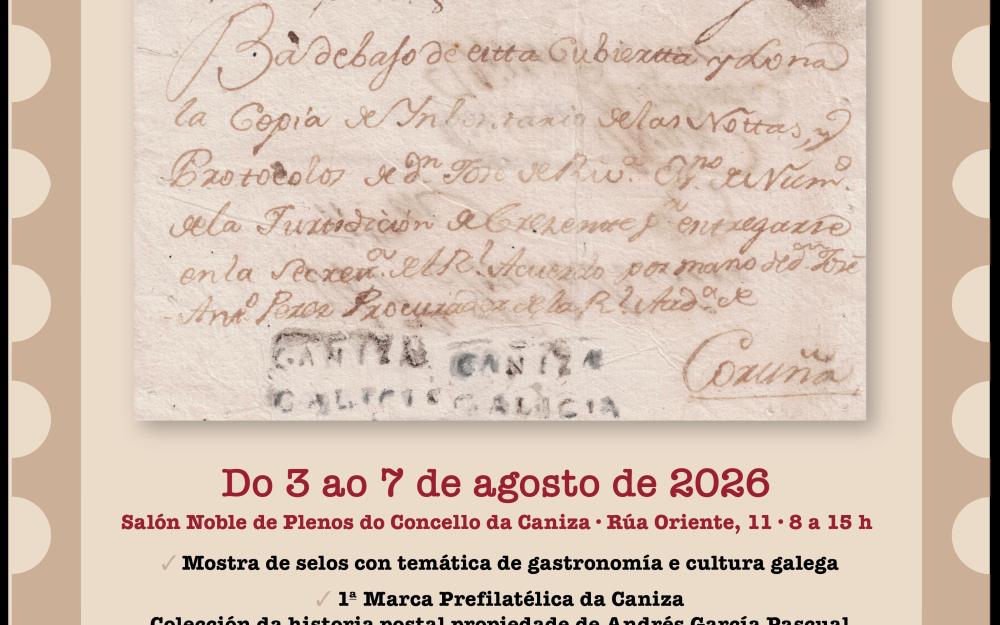 Ba debajo de esta Cubiertta y Lona
la Copia de Inbentario de las Nottas, y
Protocolos de dn. Jose de Riva. Esno. de Numo.
de la Jurisdición de Crezente pa. entregarse
en la Secreta. del Rl. Acuerdo por mano de dn. Jose
Anto. Perez Procurador de la Rl. Auda. de
Coruña
CANIZA CANIZA
GALICIA GALICIA
Do 3 ao 7 de agosto de 2026
Salón Noble de Plenos do Concello da Caniza · Rúa Oriente, 11 · 8 a 15 h
✓ Mostra de selos con temática de gastronomía e cultura galega
✓ 1ª Marca Prefilatélica da Caniza
Colección da historia postal propiedade de Andrés García Pascual